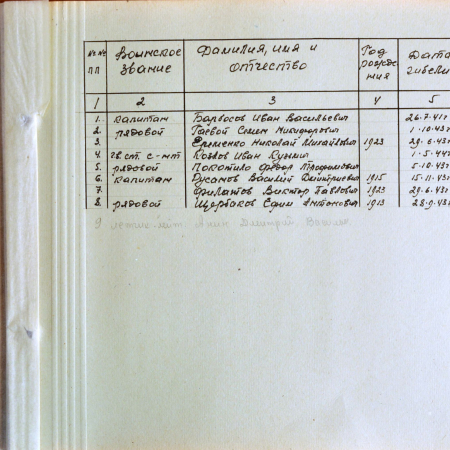 №№ пп Воинское звание Фамилия, имя и отчество Год рожде ния Дата гибели
1 2 3 4 5
1. капитан Барбосов Иван Васильевич 26.7.41г
2. рядовой Гаевой Семен Никифорович 1.10.43г
3. Еременко Николай Михайлович 1923 29.6.43г
4. гв. ст. с-нт Козлов Иван Кузьмич 1.5.44г
5. рядовой Покотило Федор Трофимович 5.10.43г
6. капитан Русанов Василий Дмитриевич 1915 15.11.43г
7. Филатов Виктор Павлович 1923 29.6.43г
8. рядовой Щербаков Ефим Антонович 1913 28.9.43г
9 Дмитрий